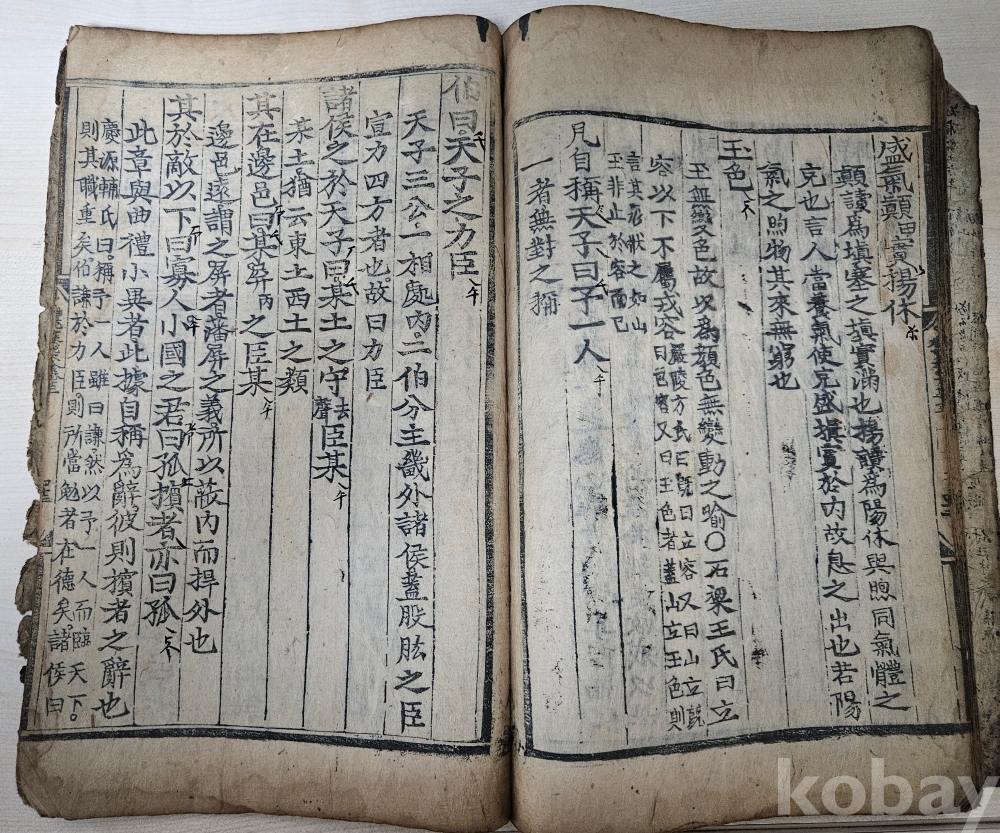 盛氣顚實揚休
顚讀爲塡塞之塡實滿也揚讀爲陽休與煦同氣體之
充也言人當養氣使充盛塡實於內故息之出也若陽
氣之煦物其來無窮也
玉色
玉無變色故以爲顔色無變動之喩○石梁王氏曰立
容以下不屬戎容嚴陵方氏曰旣曰立容又曰山立旣
曰色容又曰玉色者蓋山立玉色則
言其形狀之如山
玉非止於容而已
凡自稱天子曰予一人
一者無對之稱
伯曰天子之力臣
天子三公一相處內二伯分主畿外諸侯蓋股肱之臣
宣力四方者也故曰力臣
諸侯之於天子曰某土之守去聲臣某
某土猶云東土西土之類
其在邊邑曰某屛丙之臣某
邊邑遠謂之屛者藩屛之義所以蔽內而捍外也
其於敵以下曰寡人小國之君曰孤擯者亦曰孤
此章與曲禮小異者此據自稱爲辭彼則擯者之辭也
慶源輔氏曰稱予一人雖曰謙然以予一人而臨天下
則其職重矣伯謙於力臣則所當勉者在德矣諸侯曰
kobay